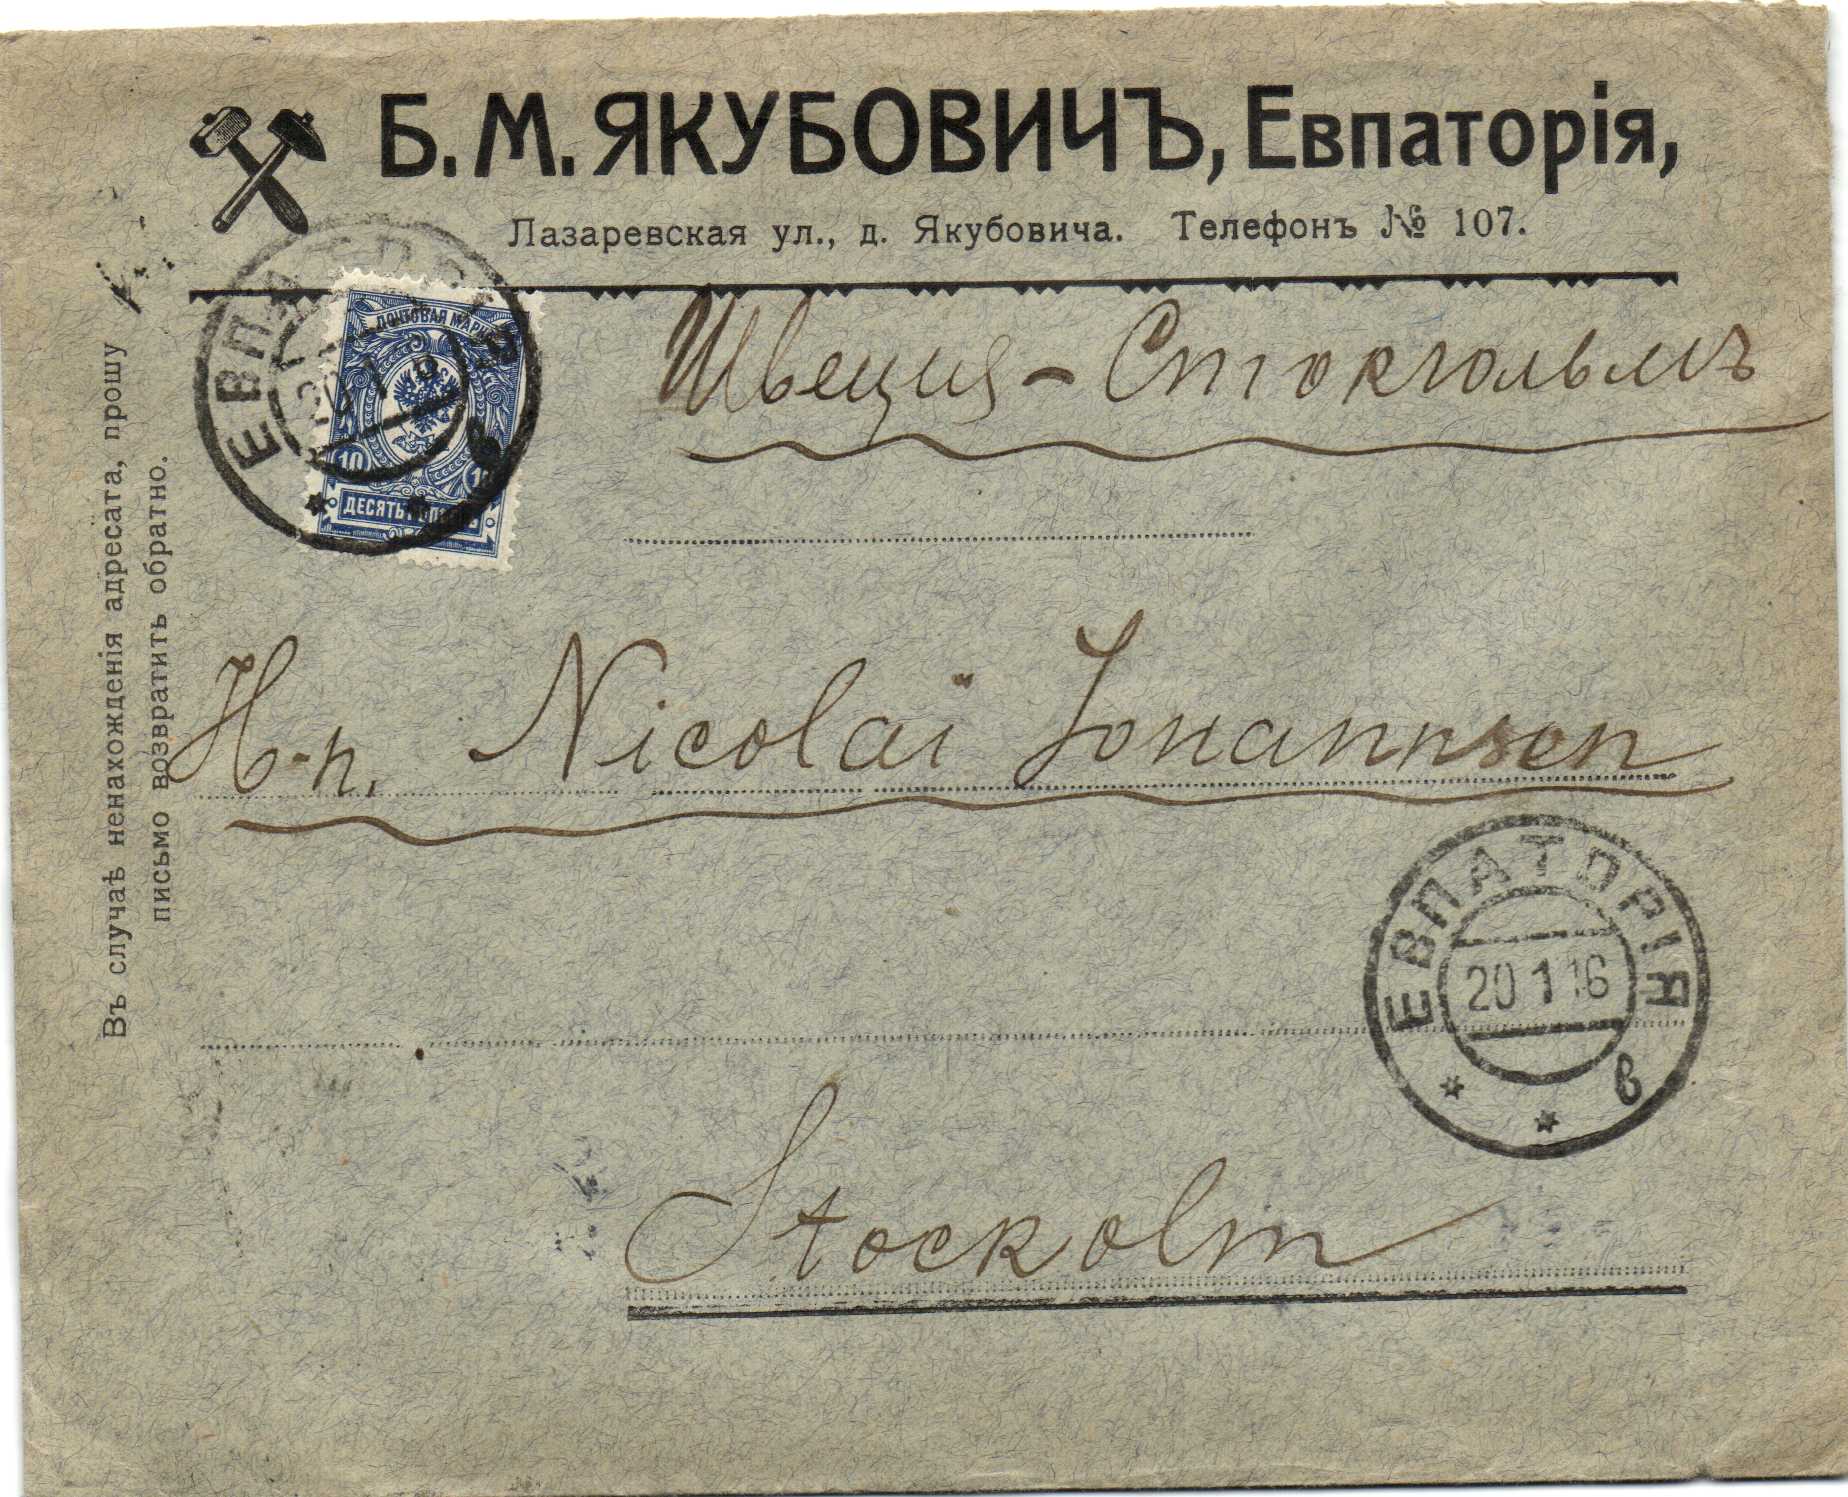 Б. М. ЯКУБОВИЧЪ, Евпаторія,
Лазаревская ул., д. Якубовича. Телефонъ № 107.
ПОЧТОВАЯ МАРКА
10 10
ДЕСЯТЬ КОПѢЕКЪ
ЕВПАТОРІЯ
20 1
Швеция - Стокгольмъ
Въ случаѣ ненахожденія адресата, прошу
письмо возвратить обратно.
H-n. Nicolai Johannsen
ЕВПАТОРІЯ
20 1 16
в
Stockolm